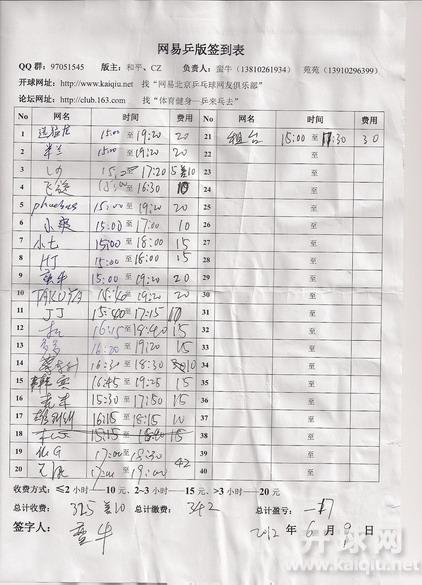 网易乒版签到表
QQ 群：97051545 版主：和平、CZ 负责人：蛮牛（13810261934） 苑苑（13910296399）
开球网址：http://www.kaiqiu.net 找“网易北京乒乓球网友俱乐部”
论坛网址：http://club.163.com 找“体育健身—乒来乓去”
No 网名 时间 费用 No 网名 时间 费用
1 15:00 至 19:20 20 21 组台 15:00 至 17:30 30
2 半兰 至 19:20 20 22 至
3 至 17:20 23 至
4 至 16:30 10 24 至
5 至 19:20 20 25 至
6 小爽 15:00 至 17:00 10 26 至
7 小七 15:00 至 18:00 15 27 至
8 HJ 15:00 至 18:00 15 28 至
9 15:00 至 19:20 20 29 至
10 TAKUYA 15:40 至 19:20 20 30 至
11 JJ 15:40 至 17:15 10 31 至
12 16:15 至 18:40 15 32 至
13 多多 16:20 至 19:20 15 33 至
14 16:30 至 18:30 10 34 至
15 16:45 至 19:25 15 35 至
16 15:30 至 17:50 15 36 至
17 16:15 至 18:15 10 37 至
18 15:15 至 15 38 至
19 17:00 至 18:30 39 至
20 至 19:00 42 40 至
收费方式：≤2 小时——10 元、2~3 小时——15 元、>3 小时——20 元
总计收费： 325 差10 总计缴费： 342 总计盈亏： -17
签字人： 蛮牛 2012 年 6 月 9 日
开球网
www.kaiqiu.net